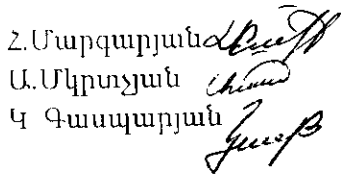 Հ.Մարգարյան
Ա.Մկրտչյան
Կ Գասպարյան